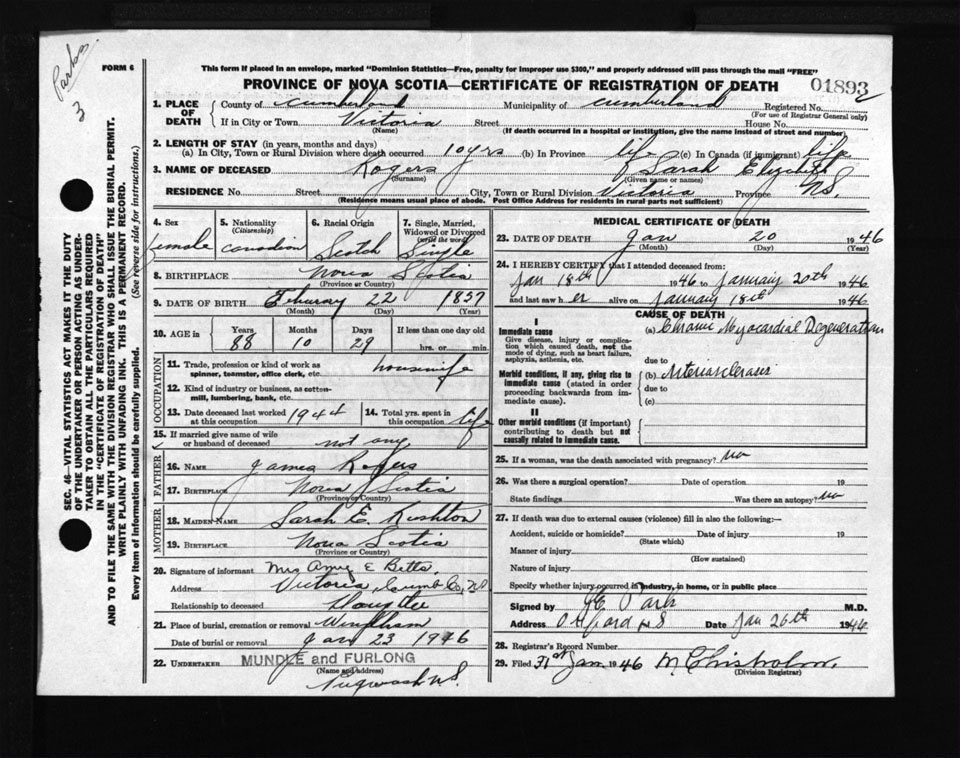 Parks
3
FORM 6
This form if placed in an envelope, marked "Dominion Statistics—Free, penalty for improper use $300," and properly addressed will pass through the mail "FREE"
PROVINCE OF NOVA SCOTIA—CERTIFICATE OF REGISTRATION OF DEATH
01893
SEC. 46—VITAL STATISTICS ACT MAKES IT THE DUTY
OF THE UNDERTAKER OR PERSON ACTING AS UNDER-
TAKER TO OBTAIN ALL THE PARTICULARS REQUIRED
IN THE "CERTIFICATE OF REGISTRATION OF DEATH"
AND TO FILE THE SAME WITH THE DIVISION REGISTRAR WHO SHALL ISSUE THE BURIAL PERMIT.
WRITE PLAINLY WITH UNFADING INK. THIS IS A PERMANENT RECORD.
Every item of information should be carefully supplied. (See reverse side for instructions.)
1. PLACE OF DEATH County of Cumberland Municipality of Cumberland Registered No.
(For use of Registrar General only)
If in City or Town Victoria Street House No.
(Name) (If death occurred in a hospital or institution, give the name instead of street and number)
2. LENGTH OF STAY (in years, months and days)
(a) In City, Town or Rural Division where death occurred 10 yrs (b) In Province life (c) In Canada (if immigrant) life
3. NAME OF DECEASED Rogers Sarah Elizabeth
(Surname) (Given name or names)
RESIDENCE No. Street City, Town or Rural Division Victoria Province N.S.
(Residence means usual place of abode. Post Office Address for residents in rural parts not sufficient)
4. Sex female
5. Nationality (Citizenship) Canadian
6. Racial Origin Scotch
7. Single, Married, Widowed or Divorced (write the word) Single
8. BIRTHPLACE Nova Scotia
(Province or Country)
9. DATE OF BIRTH February 22 1857
(Month) (Day) (Year)
10. AGE in Years 88 Months 10 Days 29 If less than one day old hrs. or min.
OCCUPATION
11. Trade, profession or kind of work as spinner, teamster, office clerk, etc. housewife
12. Kind of industry or business, as cotton-mill, lumbering, bank, etc.
13. Date deceased last worked at this occupation 1944 14. Total yrs. spent in this occupation life
15. If married give name of wife or husband of deceased not any
FATHER
16. NAME James Rogers
17. BIRTHPLACE Nova Scotia
(Province or Country)
MOTHER
18. MAIDEN NAME Sarah E. Rushton
19. BIRTHPLACE Nova Scotia
(Province or Country)
20. Signature of informant Mrs Amy E Betts
Address Victoria, Cumb Co, N.S.
Relationship to deceased Daughter
21. Place of burial, cremation or removal Windham
Date of burial or removal Jan 23 1946
22. UNDERTAKER MUNDLE and FURLONG
(Name and address)
Pugwash N.S.
MEDICAL CERTIFICATE OF DEATH
23. DATE OF DEATH Jan 20 1946
(Month) (Day) (Year)
24. I HEREBY CERTIFY that I attended deceased from:
Jan 18th 1946 to January 20th 1946
and last saw h er alive on January 18th 1946
CAUSE OF DEATH
I
Immediate cause
Give disease, injury or complication which caused death, not the mode of dying, such as heart failure, asphyxia, asthenia, etc.
(a) Chronic Myocardial Degeneration
due to
Morbid conditions, if any, giving rise to immediate cause (stated in order proceeding backwards from immediate cause).
(b) Arteriosclerosis
due to
(c)
II
Other morbid conditions (if important) contributing to death but not causally related to immediate cause.
25. If a woman, was the death associated with pregnancy? No
26. Was there a surgical operation? Date of operation 19
State findings Was there an autopsy? No
27. If death was due to external causes (violence) fill in also the following:—
Accident, suicide or homicide? Date of injury 19
(State which)
Manner of injury
(How sustained)
Nature of injury
Specify whether injury occurred in industry, in home, or in public place
Signed by M.D.
Address Oxford N S Date Jan 26th 1946
28. Registrar's Record Number
29. Filed 31st Jan 1946 M. Chisholm
(Division Registrar)